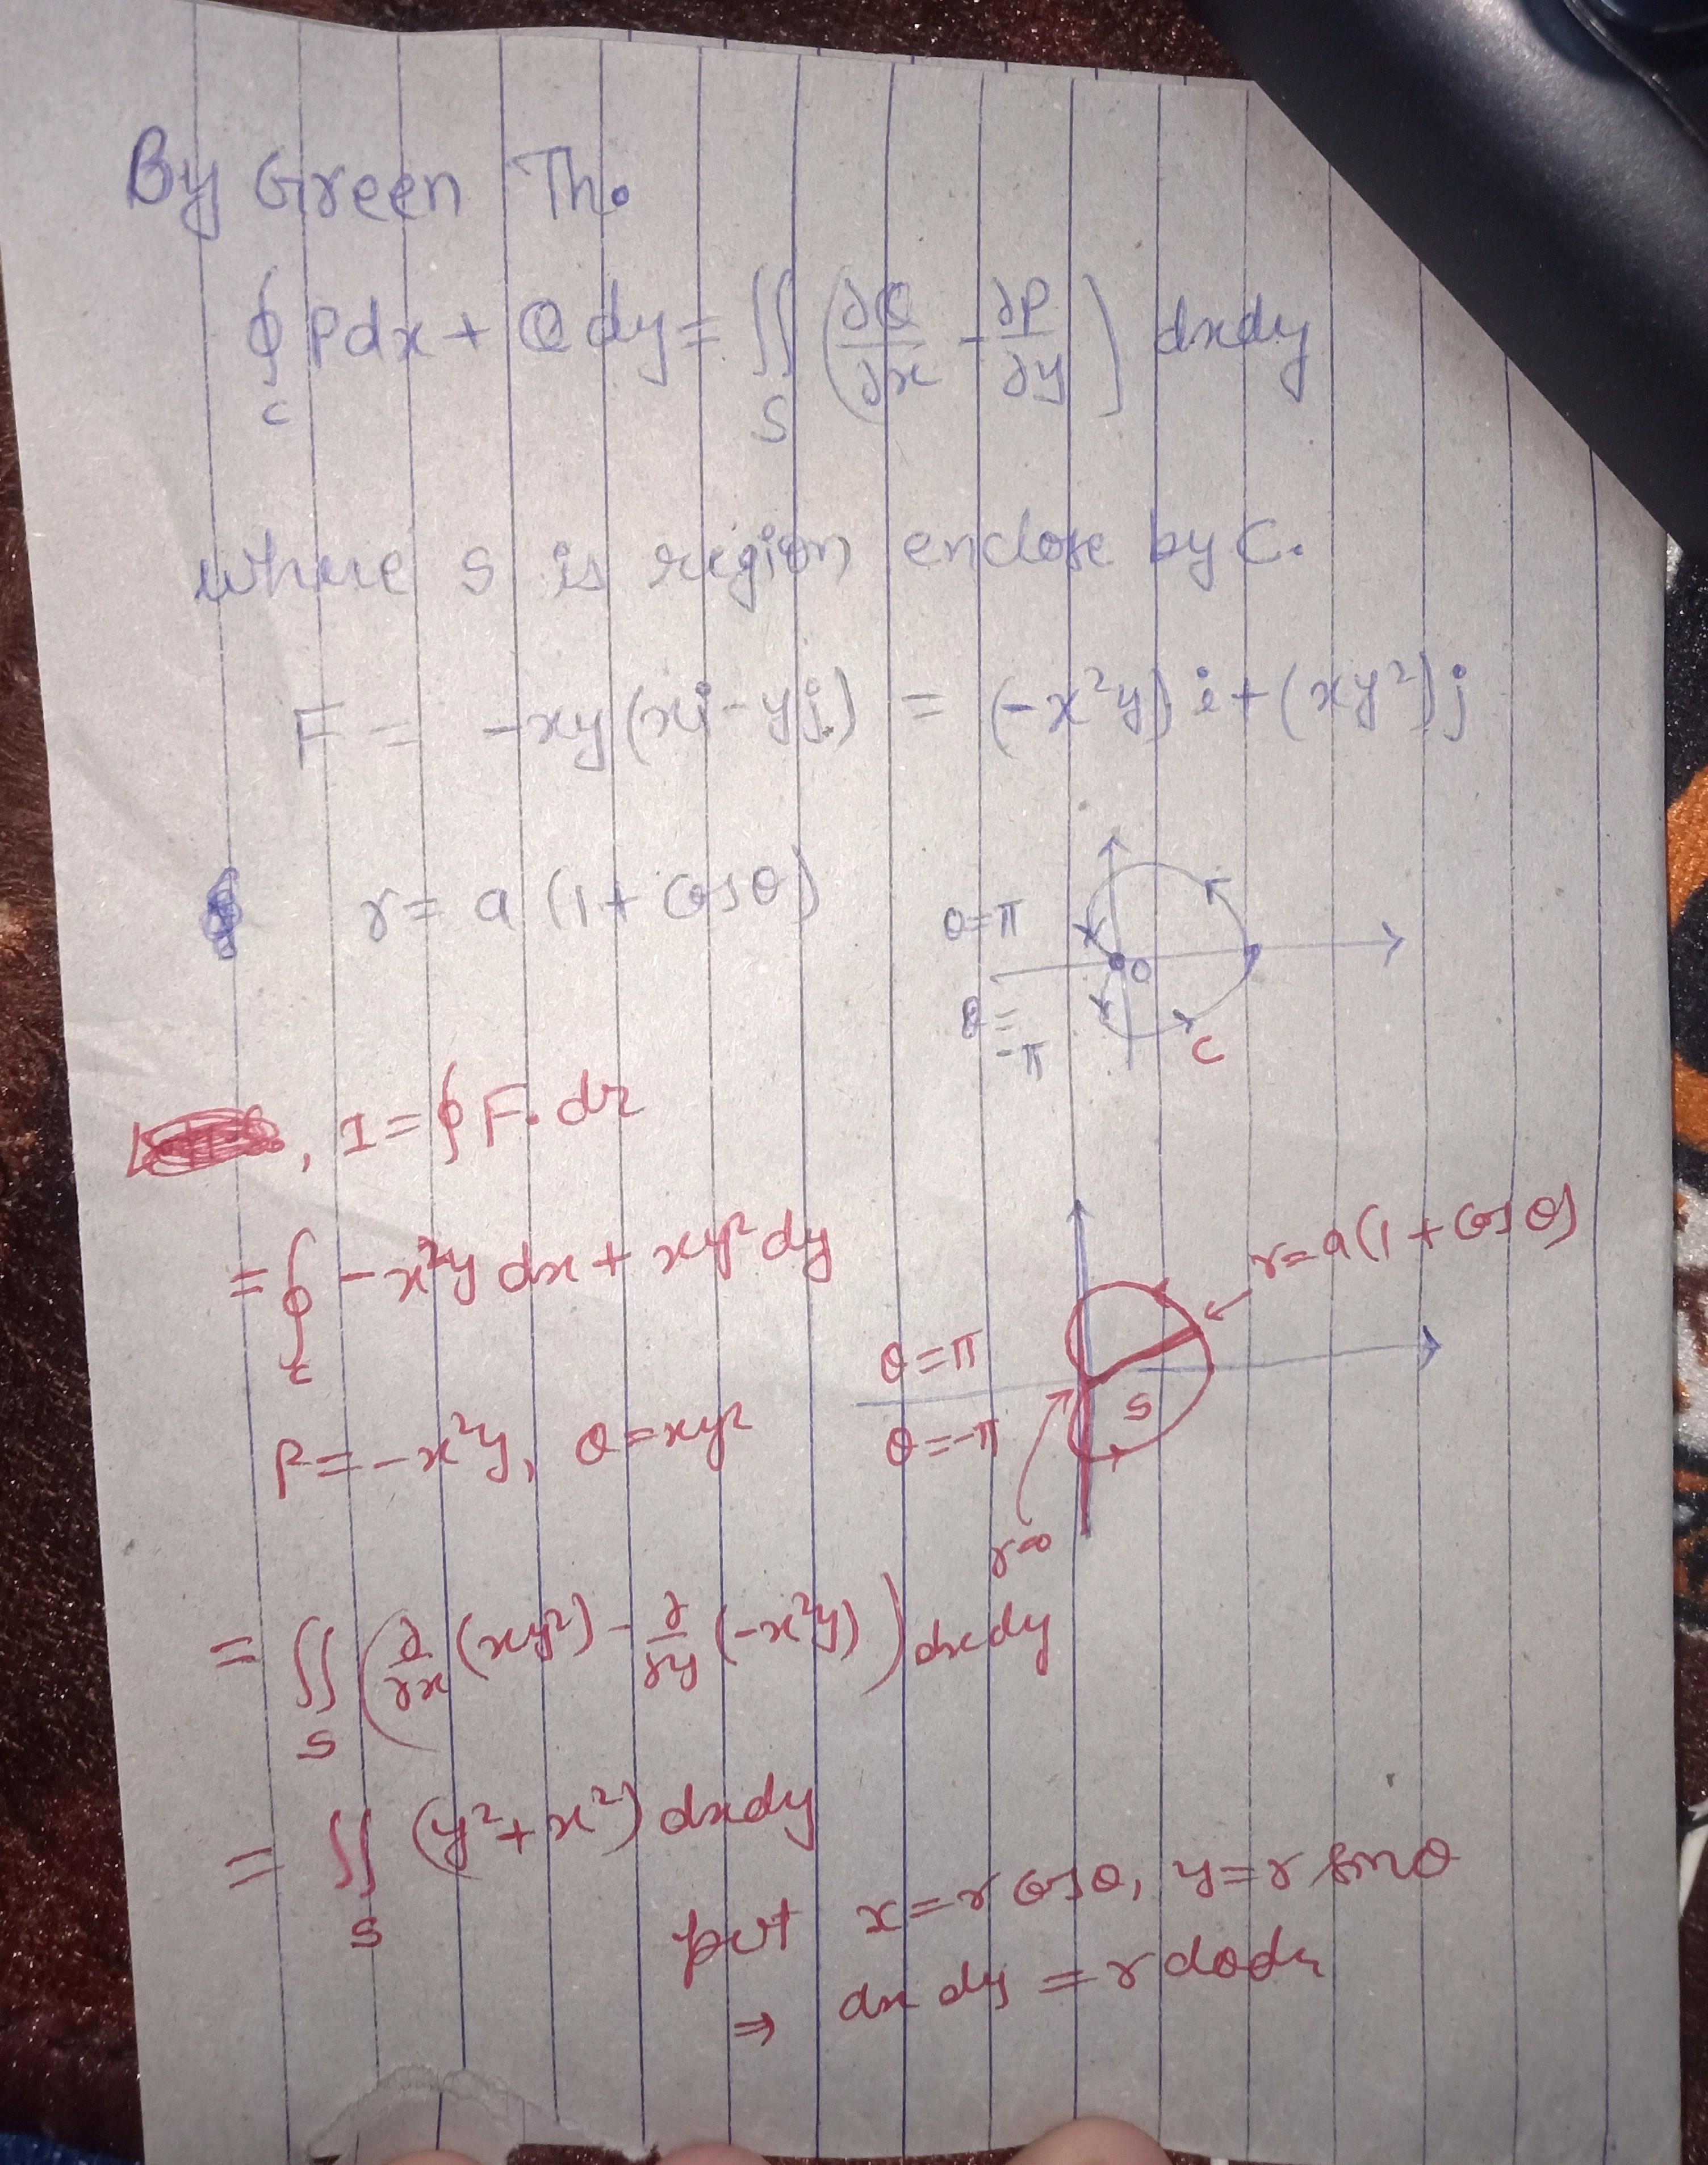 By Green Th.
∮_C Pdx + Q dy = ∬_S (∂Q/∂x - ∂P/∂y) dxdy
where S is region enclose by C.
F = -xy(xi - yj) = (-x²y)i + (xy²)j
r = a(1 + cosθ)
θ=π
O
θ=
-π
C
, I = ∮ F. dr
= ∮_C -x²y dx + xy² dy
r = a(1 + cosθ)
θ=π
S
P = -x²y, Q = xy²
θ=-π
r=0
= ∬_S (∂/∂x (xy²) - ∂/∂y (-x²y)) dxdy
= ∬_S (y² + x²) dxdy
put x = r cosθ, y = r sinθ
⇒ dx dy = r dθdr